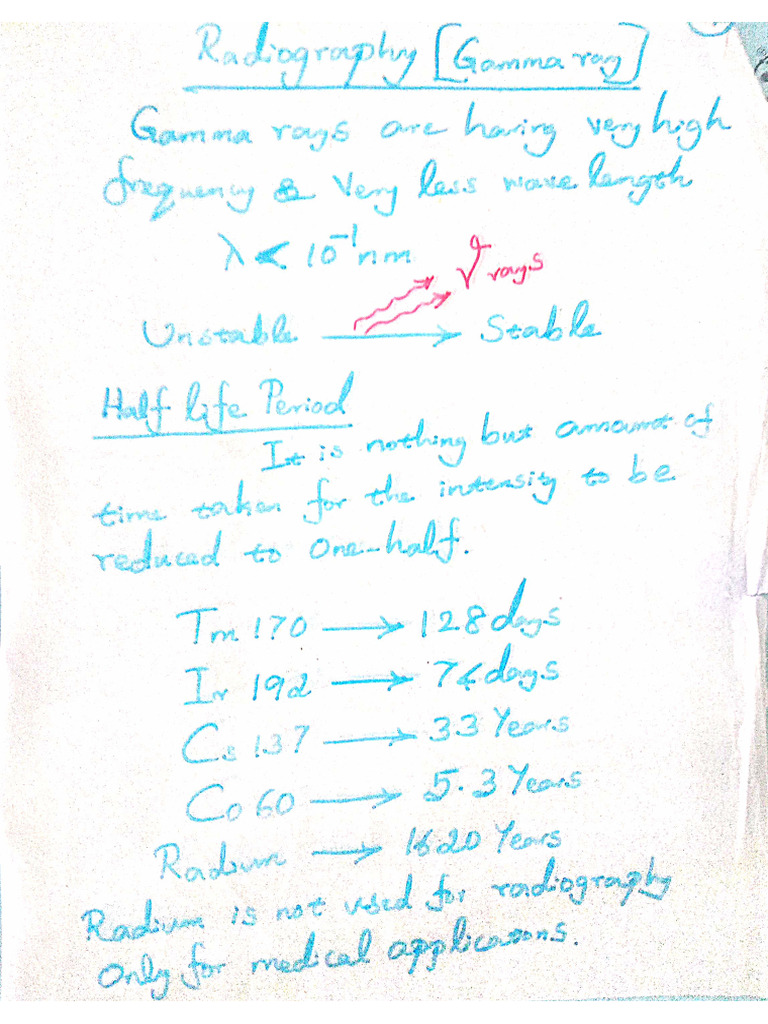 Radiography [Gamma ray]
Gamma rays are having very high
frequency & Very less wave length
λ < 10⁻¹nm
γ rays
Unstable → Stable
Half life Period
It is nothing but amount of
time taken for the intensity to be
reduced to one-half.
Tm 170 → 128 days
Ir 192 → 74 days
Cs 137 → 33 Years
Co 60 → 5.3 Years
Radium → 1620 Years
Radium is not used for radiography
Only for medical applications.